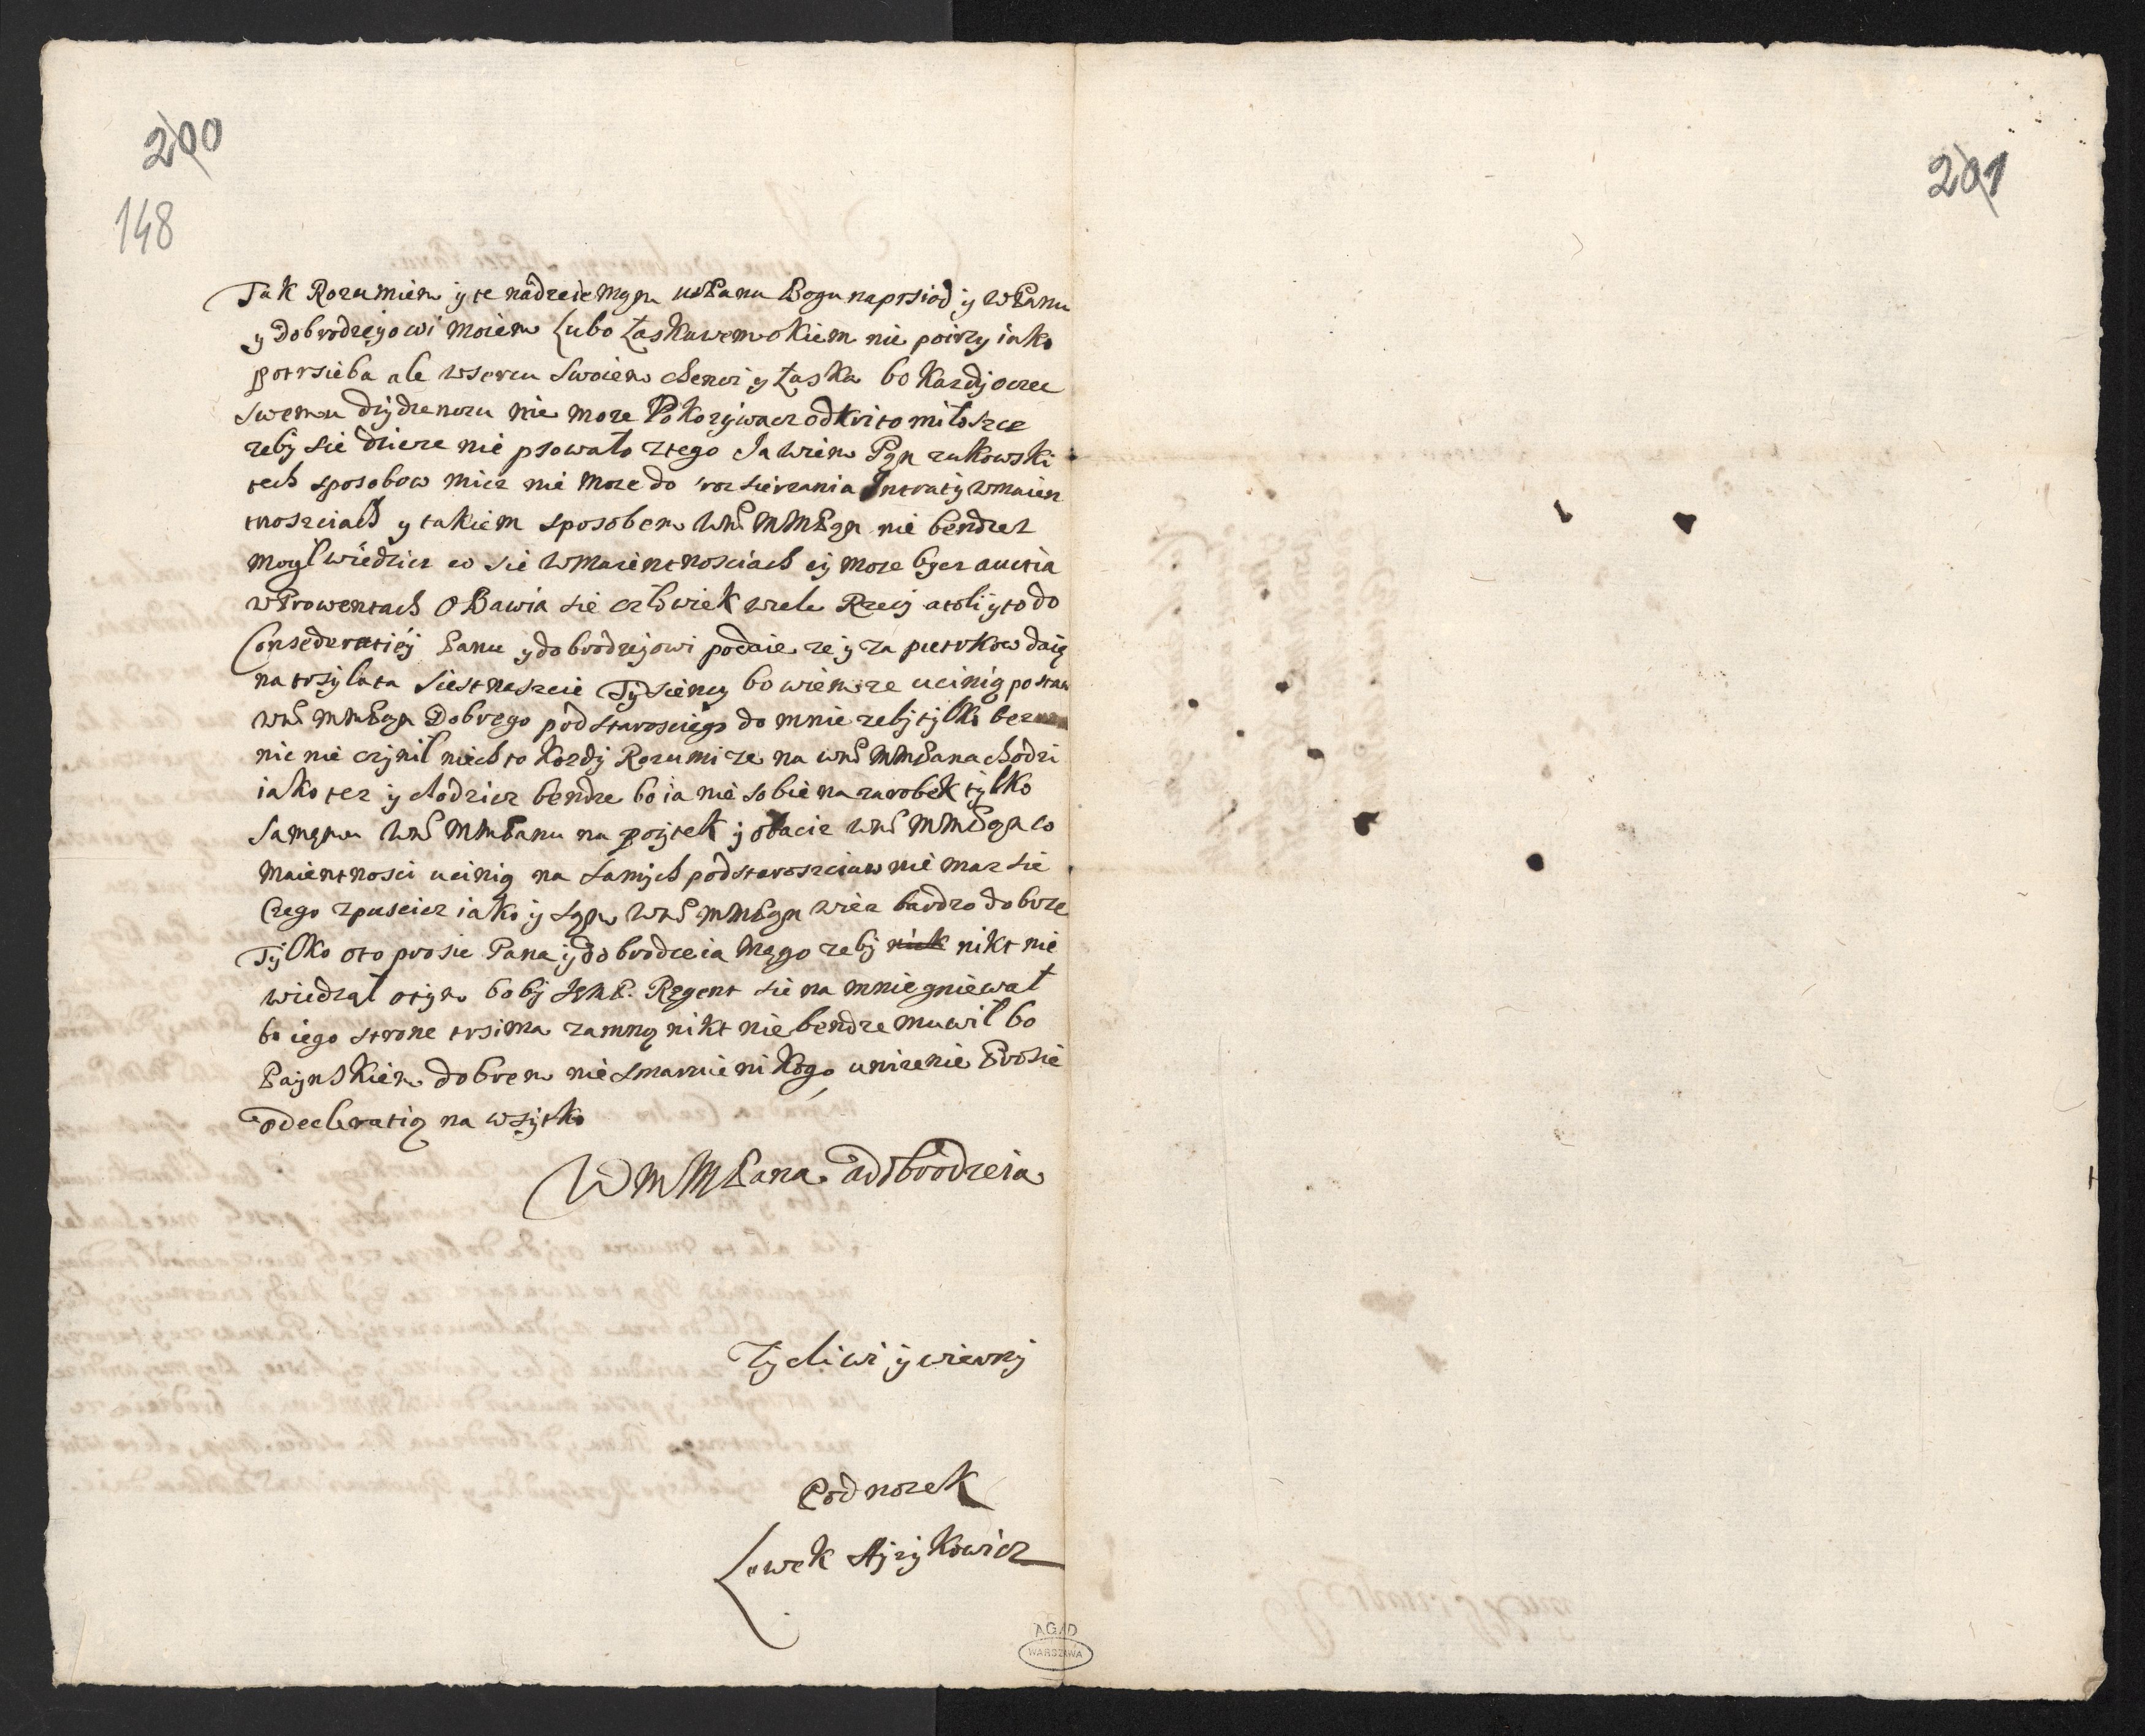 200
148
201
Tak Rozumiem y te nadzeie mym w Panu Bogu naprsiod y w Panu
y dobrodzejowi moiem Lubo Łaskawem okiem nie poirzy iako
potrsieba ale w sercu Swoiem chenci y Łaska bo kazdj ociec
swemu dzydzenczu nie moze Pokozywacz odkrito miłoszcz
zeby sie dzicze nie psowało z tego Ja wiem Pan zukowski
tech sposobow miez nie moze do roz sierzania Intraty w maien
tnoszciach y takiem sposobem WMMPan nie bendzez
mogl wiedzicz co sie w maientnosciach ej moze bycz auctia
w Prowentach O Bawia sie człowiek wiele Rzeci atoli y to do
Consederatiej Panu y dobrodzejowi podaie ze y za pietrkow daię
na trzy lata siestnaszcie Tysiency bo wiem ze ucinię postaw
WM MM Pan Dobrego podstarosciego do mnie zeby tylko bez
nic nie czynil niech to kozdy Rozumi ze na WM MM Pana chodzi
iako tez y chodzicz bendze bo ia nie sobie na zarobek tylko
samemu WM MM Panu na pozytek y obacis WM MM Pan co
maientnosci ucinię na samych podstaroszciaw nie masz sie
Czego zpuscicz iako y sam WM MM Pan wiez bardzo dobrze
Tylko oto prosie Pana y dobrodzeia mego zeby nikt nie
wiedzał o tym bo by JeMP. Regent sie na mnie gniewał
bo iego strone trsima za mnę nikt nie bendze muwił bo
Paynskiem dobrem nie smarnie nikogo unizenie Prosie
o declaratię na wszytko
WMM Pana a dobrodzeia
Zycliwi y wierny
Podnozek
Lewek Ayzykowicz
AGAD
WARSZAWA